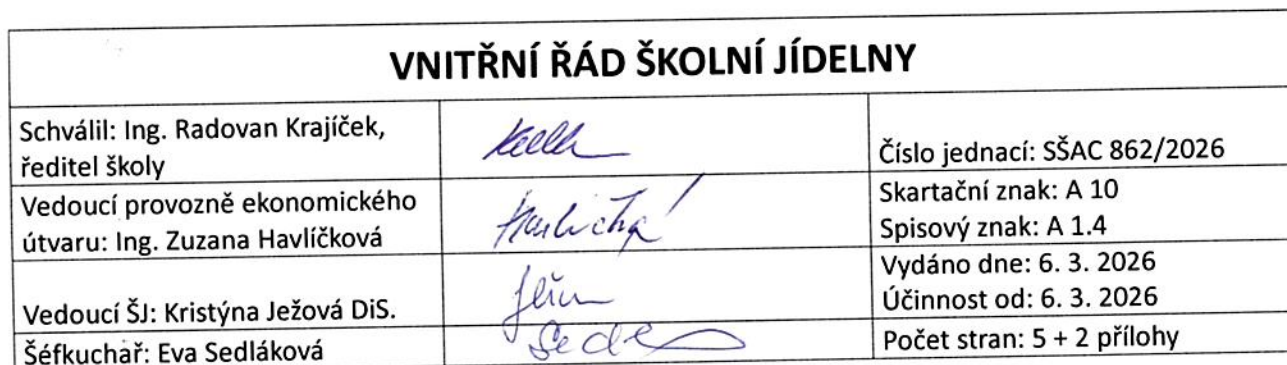 VNITŘNÍ ŘÁD ŠKOLNÍ JÍDELNY
Schválil: Ing. Radovan Krajíček,
ředitel školy
Číslo jednací: SŠAC 862/2026
Vedoucí provozně ekonomického
útvaru: Ing. Zuzana Havlíčková
Skartační znak: A 10
Spisový znak: A 1.4
Vedoucí ŠJ: Kristýna Ježová DiS.
Vydáno dne: 6. 3. 2026
Účinnost od: 6. 3. 2026
Šéfkuchař: Eva Sedláková
Počet stran: 5 + 2 přílohy